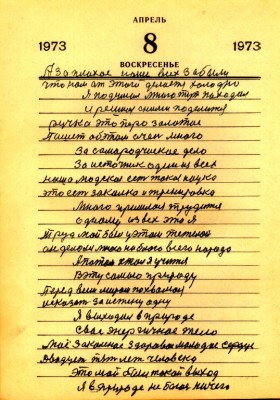 АПРЕЛЬ
1973 8 1973
ВОСКРЕСЕНЬЕ
А за плохое наше всех забыли
что нам от этого делается холодно
Я поднимал много труп находил
и решил с ними поделится
ручка это перо золотое
Пишет об этом очен много
За самородическое дело
За источник один из всех
наша людская ест така наука
это ест закалка и тренировка
Много пришлося трудится
одному из всех это я
Труд мой был у этом
много на благо всего народа
Я потом стал учится
В эту самою природу
Перед всем миром похвалится
и сказат за истену одну
Я выходил в природе
Свае энергичное тело
Моё Закалоное Здоровя молодое сердце
Двадцет пят лет человека
Это мой был такой выход
Я в Природе не боюс ничего